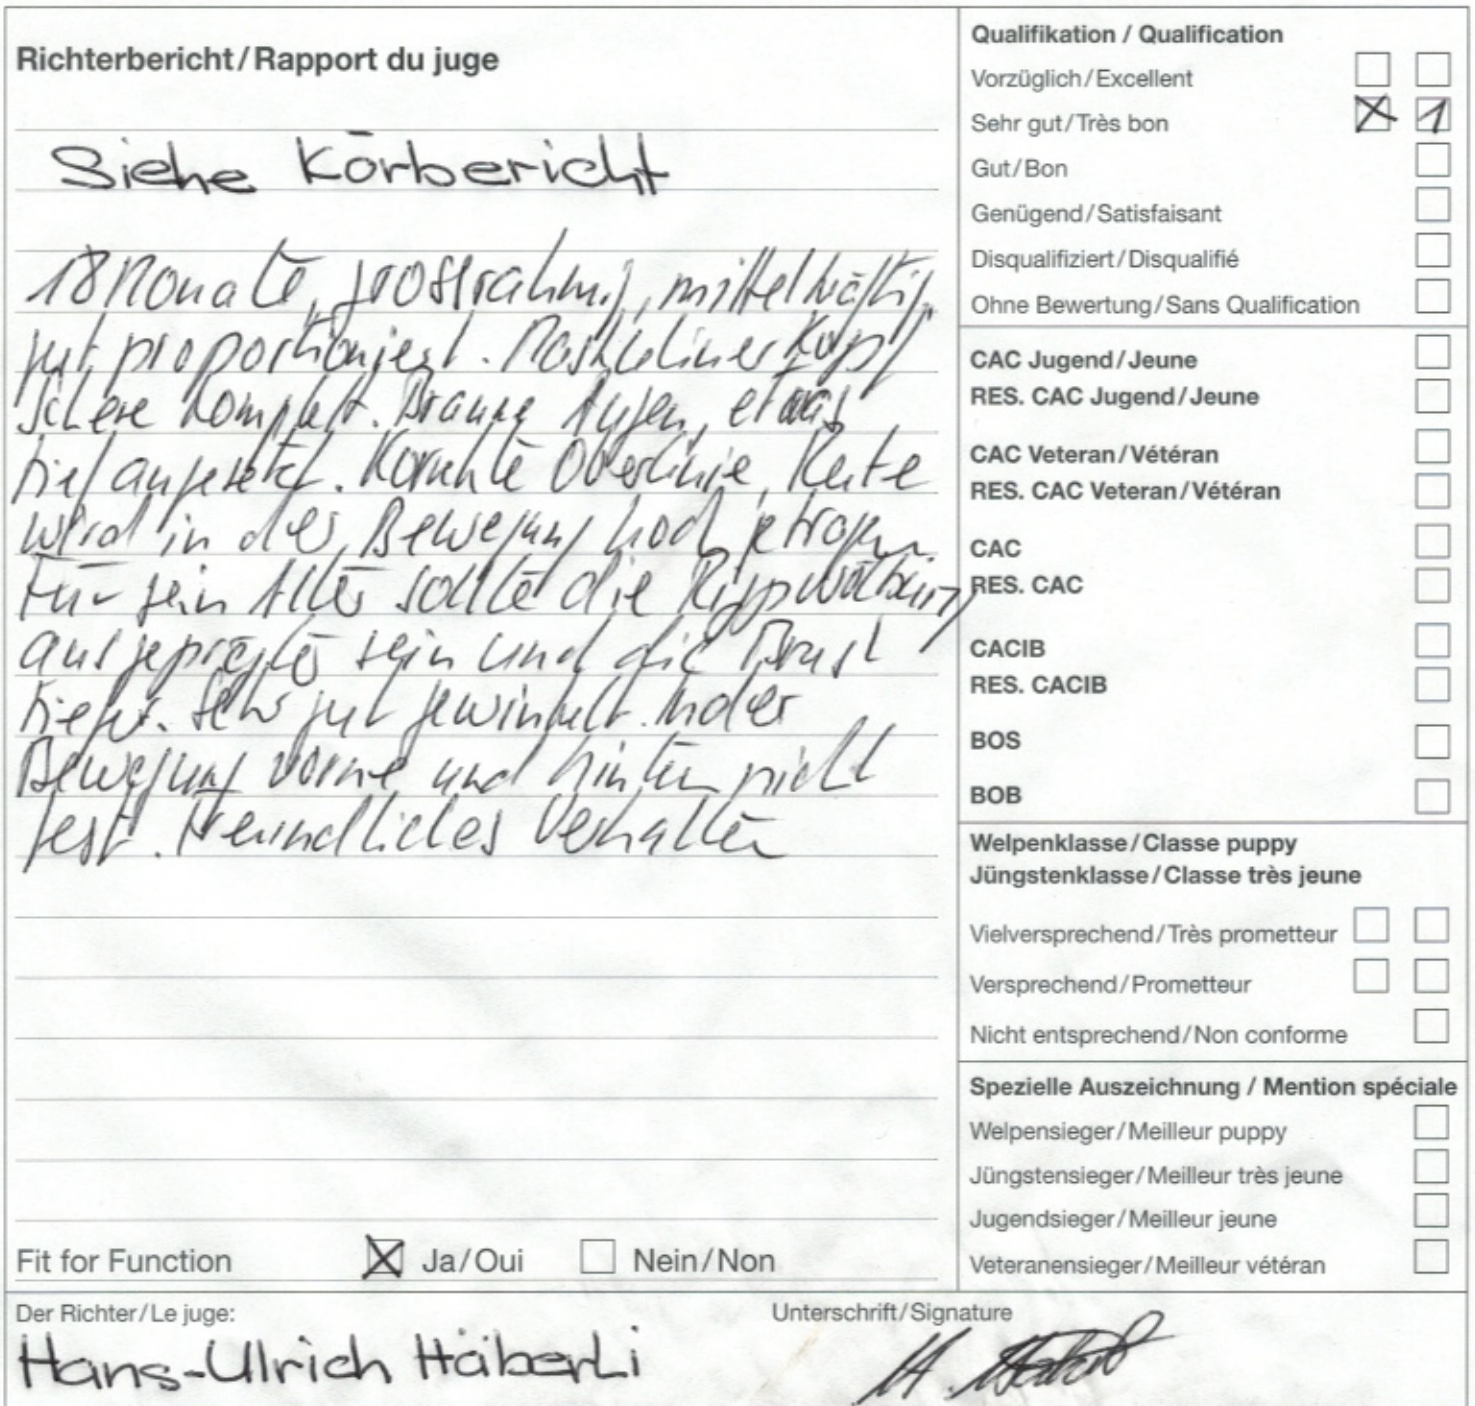 Richterbericht/Rapport du juge
Siehe Körbericht
18 Monate, grossrahmig, mittelkräftig,
gut proportioniert. Maskuliner Kopf
Schere komplett. Braune Augen, etwas
tief angesetzt. Korrekte Oberlinie, Rute
wird in der Bewegung hoch getragen.
Für sein Alter sollte die Rippwölbung
ausgeprägter sein und die Brust
tiefer. Sehr gut gewinkelt. In der
Bewegung vorne und hinten nicht
fest. Freundliches Verhalten
Fit for Function X Ja/Oui Nein/Non
Qualifikation / Qualification
Vorzüglich/Excellent
Sehr gut/Très bon X 1
Gut/Bon
Genügend/Satisfaisant
Disqualifiziert/Disqualifié
Ohne Bewertung/Sans Qualification
CAC Jugend/Jeune
RES. CAC Jugend/Jeune
CAC Veteran/Vétéran
RES. CAC Veteran/Vétéran
CAC
RES. CAC
CACIB
RES. CACIB
BOS
BOB
Welpenklasse/Classe puppy
Jüngstenklasse/Classe très jeune
Vielversprechend/Très prometteur
Versprechend/Prometteur
Nicht entsprechend/Non conforme
Spezielle Auszeichnung / Mention spéciale
Welpensieger/Meilleur puppy
Jüngstensieger/Meilleur très jeune
Jugendsieger/Meilleur jeune
Veteranensieger/Meilleur vétéran
Der Richter/Le juge:
Hans-Ulrich Häberli
Unterschrift/Signature
H.